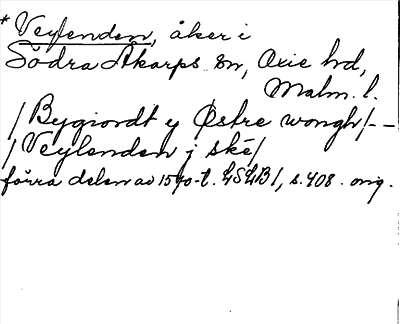 * Veylenden, åker i
Södra Åkarps sn, Oxie hd,
Malm. l.
/ Bygiordt y Østre wongh / - -
/ Veylenden j ske /
förra delen av 1590-t. LSLB 1, s. 408. orig.